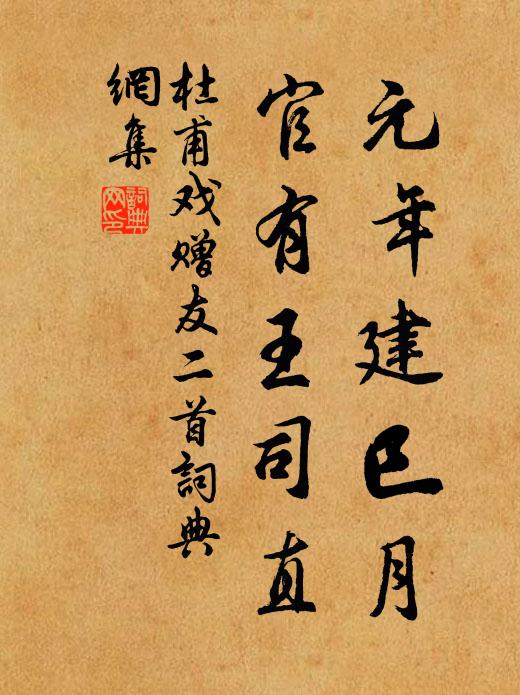 元年建巳月
官有王司直
杜甫戏赠友二首詞典
網集
詞典
网印